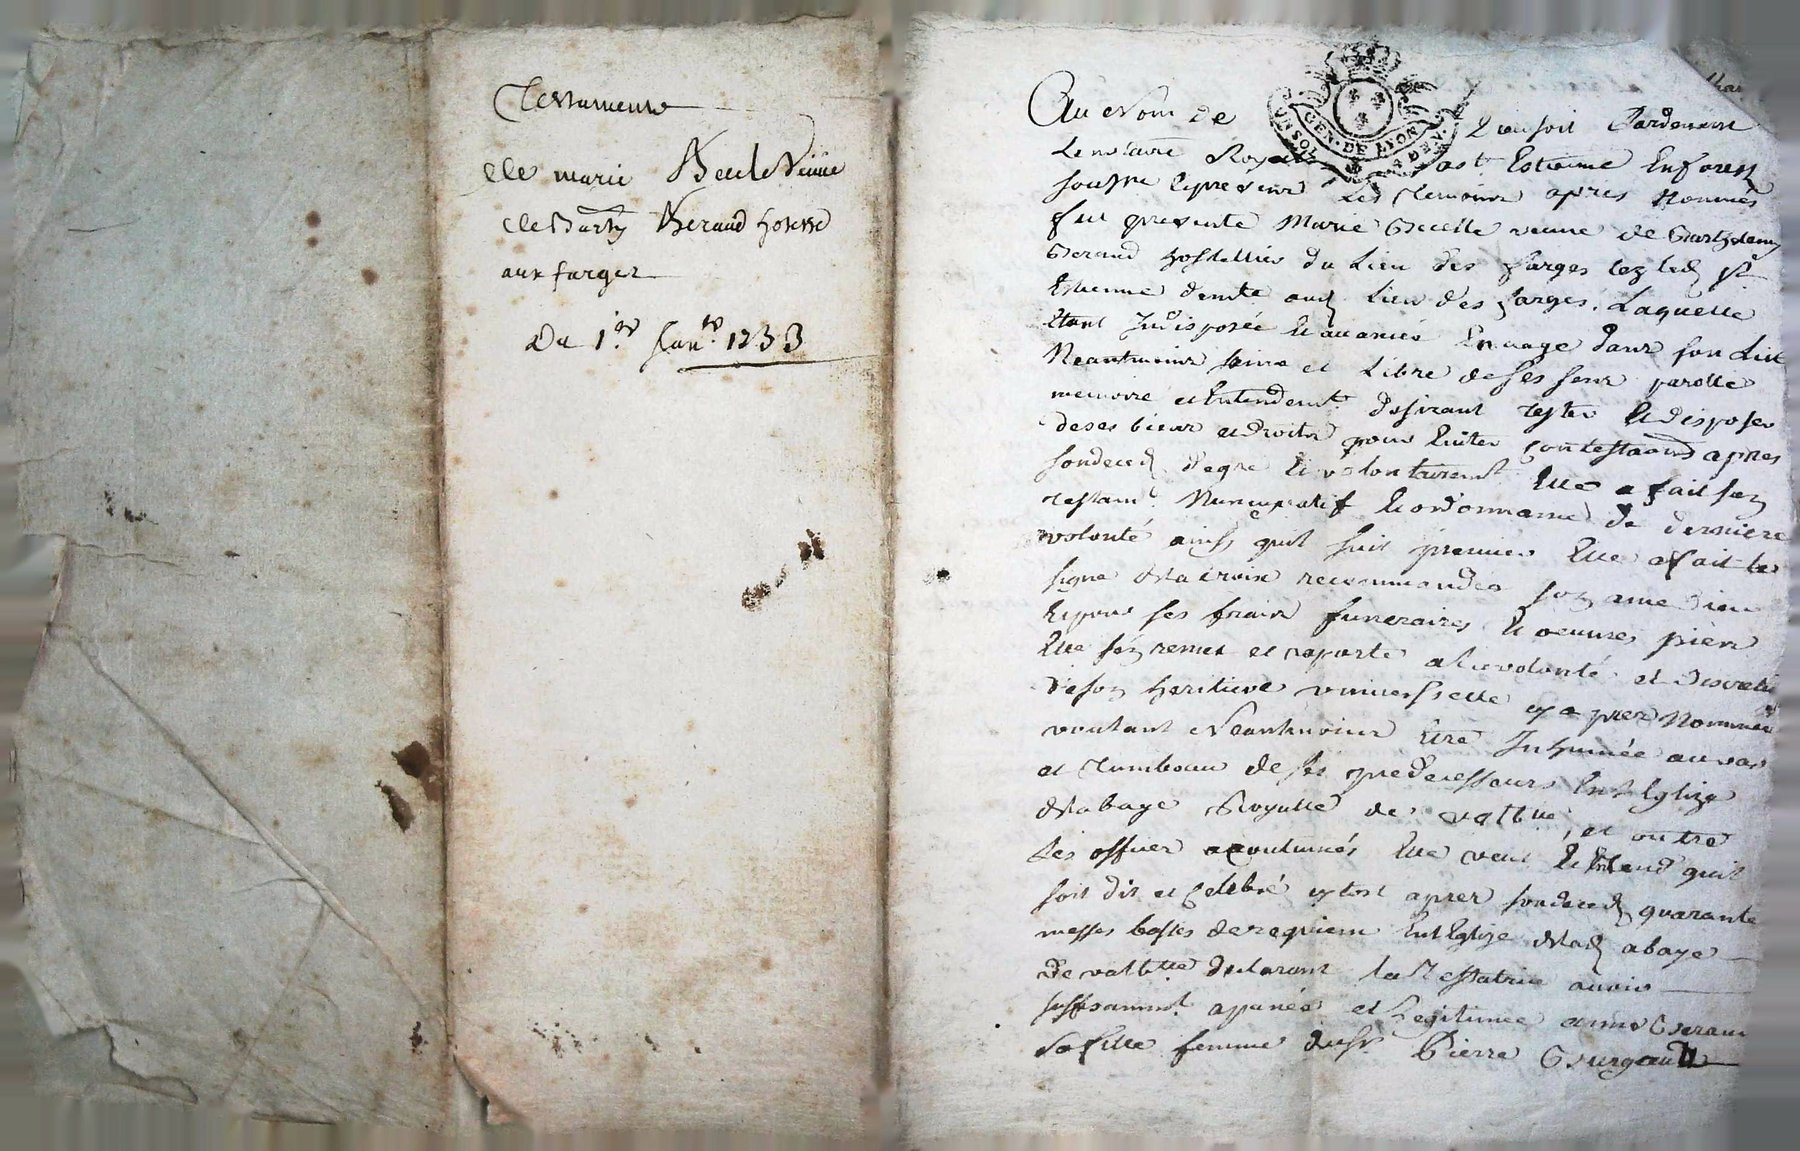 Testament
de marie Becile Veuve
de Barthy Beraud hotesse
aux farges
Du 1er Janr 1733
UN SOL
GEN. DE LYON
8 DEN.
Au Nom de Dieu soit Pardevant
Le notaire Royal a st Estienne En forest
soussne Et presens Les temoins apres Nommés
fut presente Marie Becille veuve de Barthelemy
Beraud hostellier du Lieu des farges lez led st
Estienne demte aud Lieu des farges. Laquelle
Etant Indisposée Et avancée En aage dans son Lit
Neantmoins saine et Libre de ses sens parolle
memoire et Entendemt desirant tester Et disposer
de ses biens et droits pour Eviter Contestaons apres
son deced de gre Et volontairemt Elle a fait son
testamt Nuncupatif Et ordonnance de derniere
volonté ainsy quil suit premier Elle a fait le
signe de la Croix recommandée son ame a Dieu
Et pour ses frais funeraires Et oeuvres pies
Elle sen remet et raporte a la volonté et discretion
de son heritiere universselle cy apres Nommée
voulant Neantmoins Etre Inhumée au vas
et tumbeau de ses predecesseurs En l Eglize
de labaye Royalle de valbenoite, et outre
Les offices accoutumés Elle veut Et Entend quil
soit dit et Celebré cy tost apres son deced quarante
messes basses de requiem En lEglize de lad abaye
de valbtte declarant la Testatrice avoir
suffisamnt apanée et Legitimée anne Beraud
sa fille femme du sr Pierre Bourgaud